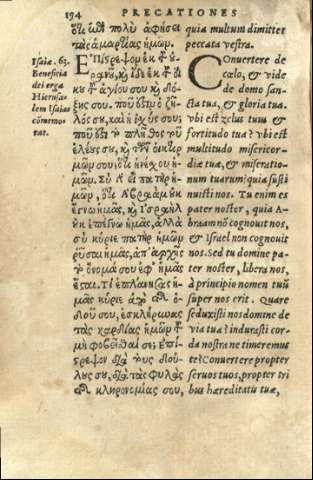 194 PRECATIONES
Isaiæ. 63.
Beneficia
dei erga
Hierusa
lem Isaias
cōmemo-
rat.
ὅτι ἐπὶ πολὺ ἀφήσει
τὰς ἁμαρτίας ἡμῶν.
ΕΠίστρεψον ἐκ τοῦ οὐ
ρανοῦ, καὶ ἴδε ἐκ τοῦ οἴ
κου τοῦ ἁγίου σου καὶ δό
ξης σου. ποῦ ἔστιν ὁ ζῆ
λός σου, καὶ ἡ ἰσχύς σου;
ποῦ ἔστι τὸ πλῆθος τοῦ
ἐλέους σου, καὶ τῶν οἰκτιρ
μῶν σου, ὅτι ἠνέσχου ἡ
μῶν. Σὺ εἶ πατὴρ ἡμῶν
ὅτι Ἀβραὰμ οὐκ
ἔγνω ἡμᾶς, καὶ Ἰσραὴλ
οὐκ ἐπέγνω ἡμᾶς, ἀλλὰ
σὺ κύριε πατὴρ ἡμῶν
ῥῦσαι ἡμᾶς, ἀπ' ἀρχῆς
τὸ ὄνομά σου ἐφ' ἡμᾶς
ἔσται. Τί ἐπλάνησας ἡ
μᾶς κύριε ἀπὸ τῆς ὁ-
δοῦ σου, ἐσκλήρυνας
τὰς καρδίας ἡμῶν τοῦ
μὴ φοβεῖσθαί σε; ἐπί-
στρεψον διὰ τοὺς δού-
λους σου, διὰ τὰς φυλὰς
τῆς κληρονομίας σου,
quia multum dimittet
peccata vestra.
COnuertere de
cœlo, & vide
de domo san-
cta tua, & gloria tua.
vbi est zelus tuus &
fortitudo tua? vbi est
multitudo misericor-
diæ tuæ, & miseratio-
num tuarum; quia susti
nuisti nos. Tu enim es
pater noster, quia A-
braam nō cognouit nos,
& Israel non cognouit
nos. Sed tu domine pa-
ter noster, libera nos,
à principio nomen tuū
super nos erit. Quare
seduxisti nos domine de
via tua? indurasti cor-
da nostra ne timeremus
te? Conuertere propter
seruos tuos, propter tri
bus hæreditatis tuæ,